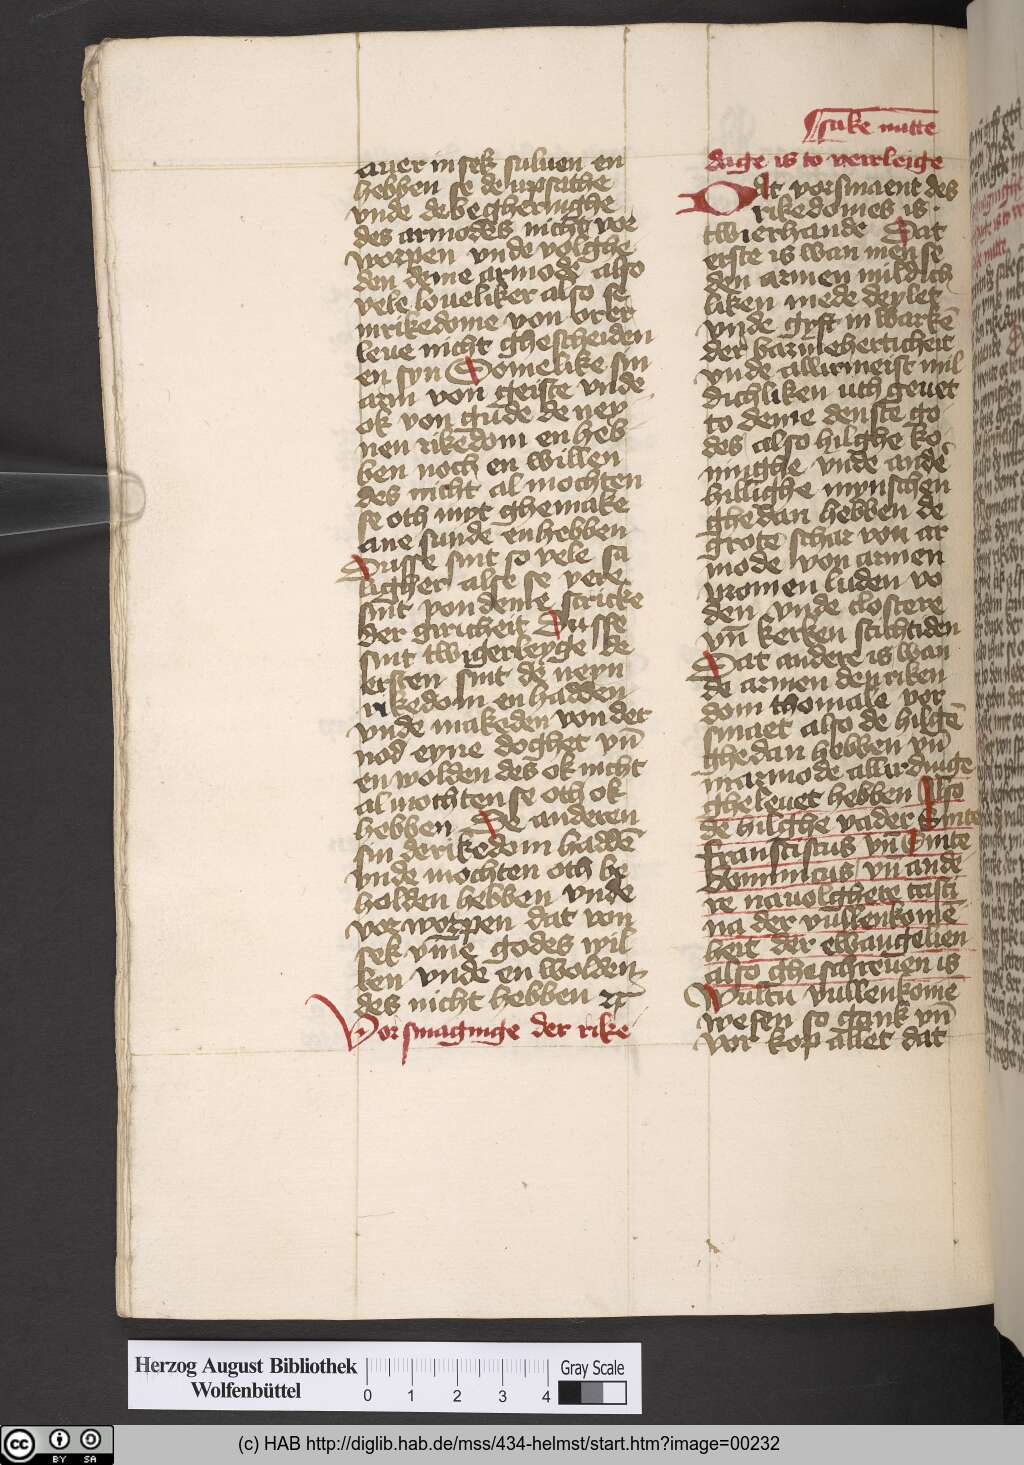 auer in sek suluen en
hebben se de upsathe
vnde de begheringhe
des armodes nicht vor
worpen vnde volghe
den deme armode also
vele loueliker also se
in rikedome von orer
leue nicht ghescheiden
en syn Somelike sin
arm von geiste vnde
ok von gude de ney
nen rikedom en heb
ben noch en willen
des nicht al mochten
se oth myt ghemake
ane sunde en hebben
Dusse sint so vele sa
ligher also se vere
sint von deme stricke
der giricheit Dusse
sint twigerleyge de
ersten sint de neyn
rikedom en hadden
vnde makeden von der
nod eyne doghet vn̄
en wolden des ok nicht
al mochten se oth ok
hebben De anderen
sin de rikedom haddē
vnde mochten oth be
holden hebben vnde
vorworpen dat von
sek vm̄e godes wil
len vnde en wolden
des nicht hebben
Vorsmaginge der rike
sake mitte
dage is to veirleige
Dat vorsmaent des
rikedomes is
twierhande Dat
erste is wan men se
den armen mildich
liken mede deylet
vnde gyft in warkē
der barmherticheit
vnde allirmeist mil
dichliken uth geuet
to deme denste go
des also hilghe ko
ninghe vnde ande
hillighe mynschen
ghedan hebben de
grote schar von ar
mode von armen
vromen luden vo
den vnde clostere
vn̄ kerken stichtiden
Dat andere is wan
de armen den riken
dom thomale vor
smaet also de hilgē
ghedan hebben vn̄
in armode allir dinge
gheleuet hebben Also
de hilghe vader Sinte
Franciscus vn̄ Sinte
Dominicus vn̄ ande
re nauolghere cristi
na der vullenkome
heit der ewangelien
also gheschreuen is
Wultu vullenkome
wesen so gank vn̄
vor kop allet dat
Herzog August Bibliothek
Wolfenbüttel
0 1 2 3 4
Gray Scale
cc BY SA
(c) HAB http://diglib.hab.de/mss/434-helmst/start.htm?image=00232